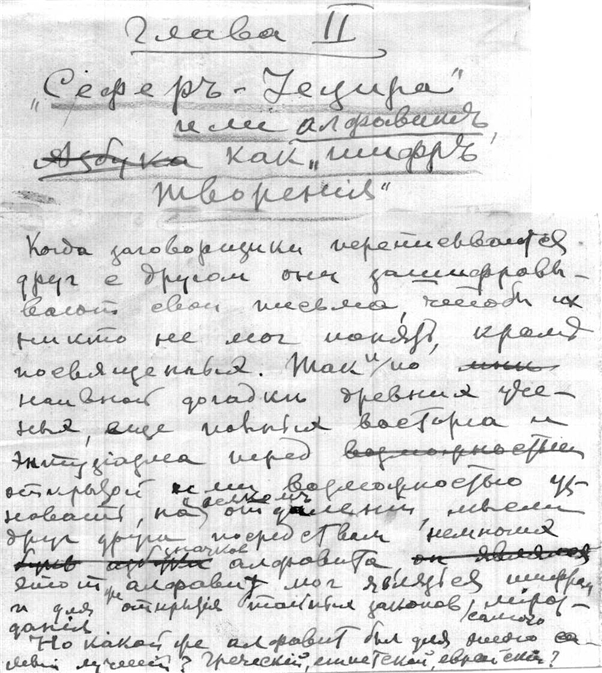 Глава II
"Сеферъ-Іецира"
или алфавитъ,
Азбука какъ "шифръ
творения"
Когда заговорщики переписываются
друг с другом они зашифровы-
вают свои письма, чтобы их
никто не мог понять, кроме
посвященных. Так и по мнѣ
наивной догадкѣ древних уче-
ных, еще полных восторга и
энтузіазма перед возможностью
открытой ими возможностью уз-
навать, на всякомъ отдалении мысли
друг друга посредством немногих
значков алфавита, он являлся
этот же алфавит мог явиться шифром
и для открытія тайных законов самого міроз-
дания
Но какой же алфавит был для этого са-
мый лучший? Греческій, египетской, еврейской?